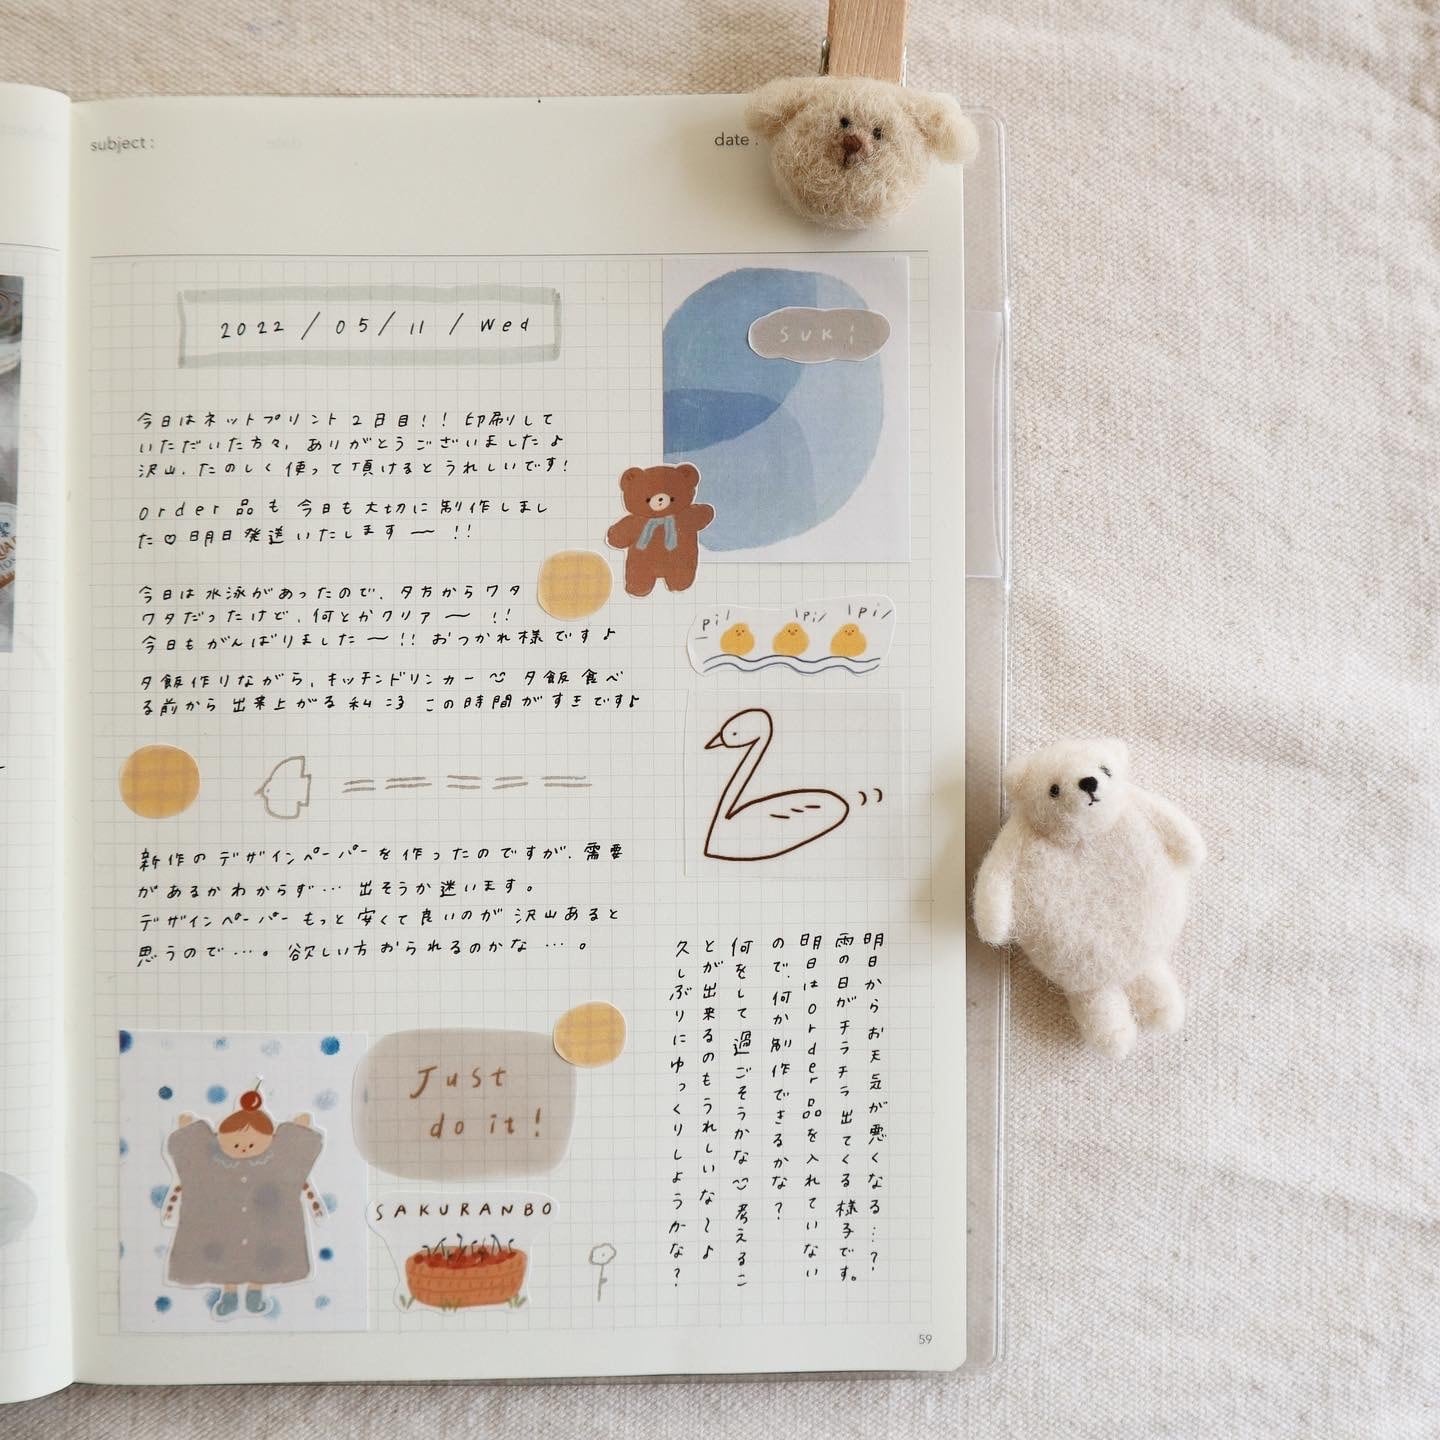 subject :
date :
2022 / 05 / 11 / Wed
suki
今日はネットプリント2日目!! 印刷して
いただいた方々、ありがとうございました♪
沢山、たのしく使って頂けるとうれしいです!
order品も今日も大切に制作しまし
た♡明日発送いたします〜!!
今日は水泳があったので、夕方からワタ
ワタだったけど、何とかクリア〜!!
今日もがんばりました〜!! おつかれ様です♪
夕飯作りながら、キッチンドリンカー 夕飯食べ
る前から出来上がる私 この時間がすきです♪
pi!
pi/
pi/
新作のデザインペーパーを作ったのですが、需要
があるかわからず… 出そうか迷います。
デザインペーパーもっと安くて良いのが沢山あると
思うので…。欲しい方おられるのかな…。
明日からお天気が悪くなる…?
雨の日がチラチラ出てくる様子です。
明日はorder品を入れていない
ので、何か制作できるかな?
何をして過ごそうかな 考えるこ
とが出来るのもうれしいな〜♪
久しぶりにゆっくりしようかな?
Just
do it!
SAKURANBO
59